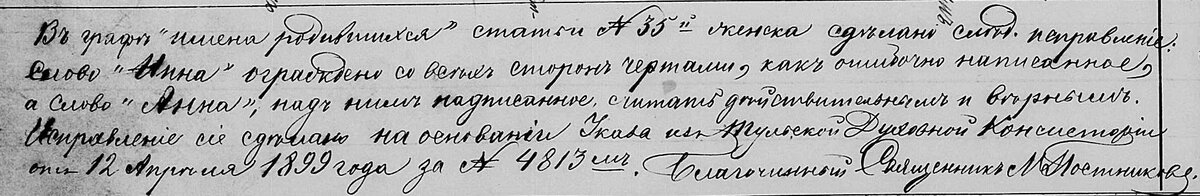 Въ графѣ "имена родившихся" статьи № 35й женска сдѣлано слѣд. исправленіе:
слово "Инна" ограждено со всѣхъ сторонъ чертами, какъ ошибочно написанное,
а слово "Анна", надъ нимъ надписанное, считать дѣйствительнымъ и вѣрнымъ.
Исправленіе сіе сдѣлано на основаніи Указа изъ Тульской Духовной Консисторіи
отъ 12 Апрѣля 1899 года за № 4813мъ. Благочинный Священникъ М. Постниковъ.